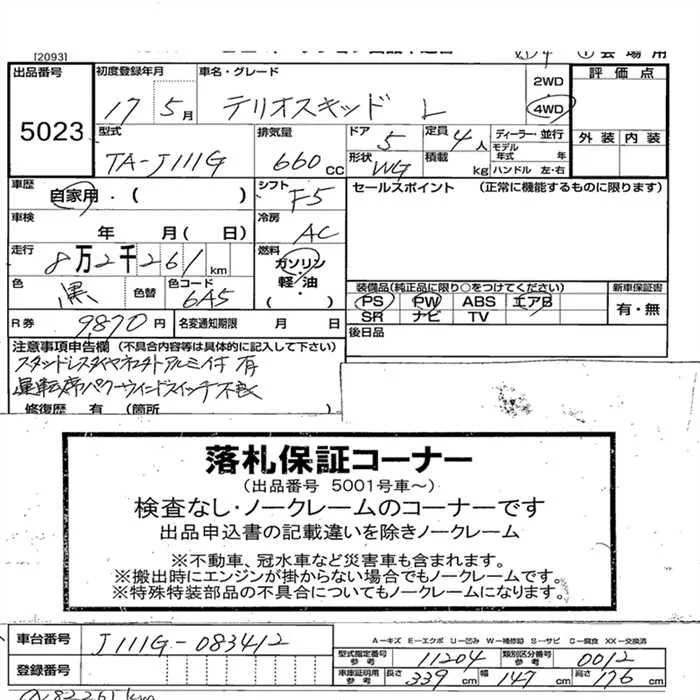 [2093]
出品番号 5023
初度登録年月 17 5月
車名・グレード テリオスキッド L
2WD
4WD
評価点
外装 内装
型式 TA-J111G
排気量 660cc
ドア 5
定員 4人
形状 WG
積載 kg
ディーラー・並行
モデル年式 年
ハンドル 左・右
車歴 自家用・( )
シフト F5
セールスポイント (正常に機能するものに限ります)
車検 年 月(日)
冷房 AC
走行 8万2千261km
燃料 ガソリン・軽・油・( )
色 黒
色替
色コード 6A5
装備品(純正品に限り○をつけてください)
PS PW ABS エアB
SR ナビ TV
新車保証書
有・無
R券 9,870円
名変通知期限 月 日
後日品
注意事項申告欄 (不具合内容等は具体的に記入して下さい)
運転席パワーウィンドスイッチ不良
修復歴 有 (箇所 )
落札保証コーナー
(出品番号 5001号車~)
検査なし・ノークレームのコーナーです
出品申込書の記載違いを除きノークレーム
※不動車、冠水車など災害車も含まれます。
※搬出時にエンジンが掛からない場合でもノークレームです。
※特殊特装部品の不具合についてもノークレームになります。
車台番号 J111G-083412
A-キズ E-エクボ U-凹み W-補修跡 S-サビ C-腐食 XX-交換済
型式指定番号参考 11204
類別区分番号参考 0012
登録番号
車庫証明用参考 長さ 339cm 幅 147cm 高さ 176cm
82261km